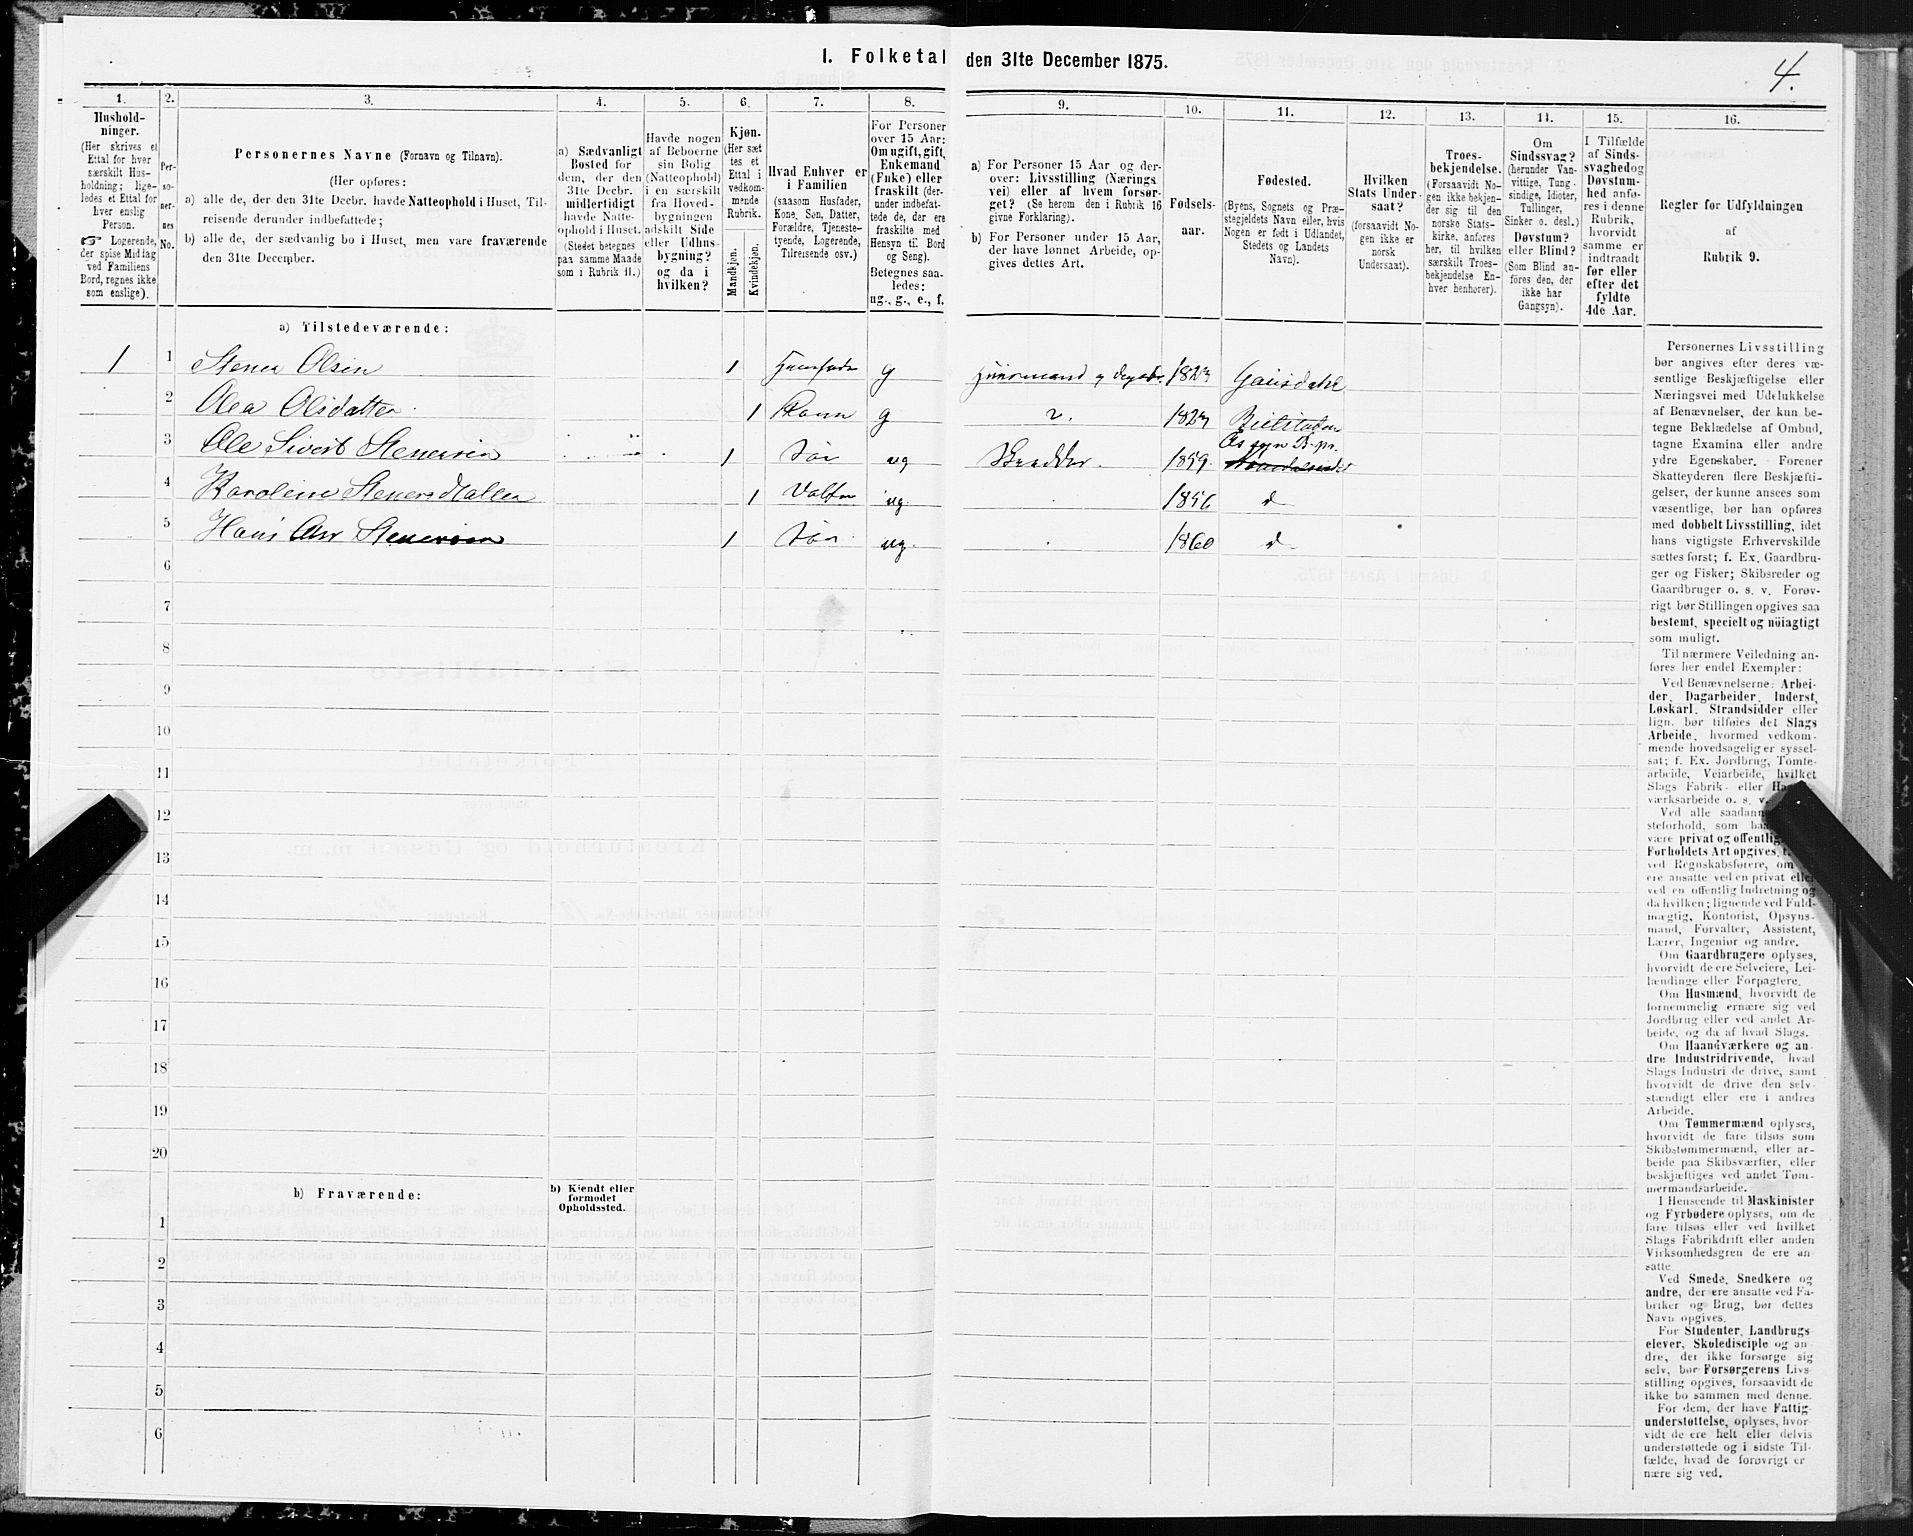 I. Folketal den 31te December 1875.
4.
1. 2. 3. 4. 5. 6. 7. 8. 9. 10. 11. 12. 13. 14. 15. 16.
Hushold-
ninger.
(Her skrives et
Ettal for hver
særskilt Hus-
holdning; lige-
ledes et Ettal for
hver enslig
Person.
☞ Logerende,
der spise Middag
ved Familiens
Bord, regnes ikke
som enslige).
Per-
so-
ner-
nes
No.
Personernes Navne (Fornavn og Tilnavn).
(Her opføres:
a) alle de, der den 31te Decbr. havde Natteophold i Huset, Til-
reisende derunder indbefattede;
b) alle de, der sædvanlig bo i Huset, men vare fraværende
den 31te December.
a) Sædvanligt
Bosted for
dem, der den
31te Decbr.
midlertidigt
havde Natte-
ophold i Huset.
(Stedet betegnes
paa samme Maade
som i Rubrik 11.)
Havde nogen
af Beboerne
sin Bolig
(Natteophold)
i en særskilt
fra Hoved-
bygningen
adskilt Side
eller Udhus-
bygning?
og da i
hvilken?
Kjøn.
(Her sæt
tes et
Ettal i
vedkom-
mende
Rubrik.
Mandkjøn.
Kvindekjøn.
Hvad Enhver er
i Familien
(saasom Husfader,
Kone, Søn, Datter,
Forældre, Tjeneste-
tyende, Logerende,
Tilreisende osv.)
For Personer
over 15 Aar:
Om ugift, gift,
Enkemand
(Enke) eller
fraskilt (der-
under indbefat-
tede de, der ere
fraskilte med
Hensyn til Bord
og Seng).
Betegnes saa-
ledes:
ug., g., e., f.
a) For Personer 15 Aar og der-
over: Livsstilling (Nærings
vei) eller af hvem forsør-
get? (Se herom den i Rubrik 16
givne Forklaring).
b) For Personer under 15 Aar,
der have lønnet Arbeide, op-
gives dettes Art.
Fødsels-
aar.
Fødested.
(Byens, Sognets og Præ-
stegjeldets Navn eller, hvis
Nogen er født i Udlandet,
Stedets og Landets
Navn).
Hvilken
Stats Under-
saat?
(forsaavidt No-
gen ikke er
norsk
Undersaat).
Troes-
bekjendelse.
(Forsaavidt No-
gen ikke bekjen-
der sig til den
norske Stats-
kirke, anføres
her, til hvilken
særskilt Troes-
bekjendelse En-
hver henhører).
Om
Sindssvag?
(herunder Van-
vittige, Tung-
sindige, Idioter,
Tullinger,
Sinker o. desl.)
Døvstum?
eller Blind?
(Som Blind an-
føres den, der
ikke har
Gangsyn).
I Tilfælde
af Sinds-
svaghed og
Døvstum-
hed anfø-
res i denne
Rubrik,
hvorvidt
samme er
indtraadt
før eller
efter det
fyldte
4de Aar.
Regler for Udfyldningen
af
Rubrik 9.
a) Tilstedeværende:
1 1 Stener Olsen 1 Huusfader g Huusmand 1823 Gausdahl
2 Olea Olsdatter 1 Kone g 1823
3 Ole Sivert Stenersen 1 Søn ug Skrædder. 1859
4 Karoline Stenersdatter 1 ug. 1856 d
5 Hans Stenersen 1 Søn ug. 1860 d
6
7
8
9
10
11
12
13
14
15
16
17
18
19
20
b) Fraværende:
b) Kjendt eller
formodet
Opholdssted.
1
2
3
4
5
6
Personernes Livsstilling
bør angives efter deres væ-
sentlige Beskjæftigelse eller
Næringsvei med Udelukkelse
af Benævnelser, der kun be-
tegne Beklædelse af Ombud,
tagne Examina eller andre
ydre Egenskaber. Forener
Skatteyderen flere Beskjæfti-
gelser, der kunne ansees som
væsentlige, bør han opføres
med dobbelt Livsstilling, idet
hans vigtigste Erhvervskilde
sættes først; f. Ex. Gaardbru-
ger og Fisker; Skibsreder og
Gaardbruger o. s. v. Forøv-
rigt bør Stillingen opgives saa
bestemt, specielt og nöiagtigt
som muligt.
Til nærmere Veiledning an-
føres her endel Exempler:
Ved Benævnelserne: Arbei-
der, Dagarbeider, Inderst,
Løskarl, Strandsidder eller
lign. bør tilføies det Slags
Arbeide, hvormed vedkom-
mende hovedsagelig er syssel-
sat; f. Ex. Jordbrug, Tomte-
arbeide, Veiarbeide, hvilket
Slags Fabrik- eller
værksarbeide o. s. v.
Ved alle saadanne
steforhold, som
være privat og offentlig
Forholdets Art opgives,
ved Regnskabsførere, om
ere ansatte ved en privat eller
ved en offentlig Indretning og
da hvilken; lignende ved Fuld-
mægtig, Kontorist, Opsyns-
mand, Forvalter, Assistent,
Lærer, Ingeniør og andre.
Om Gaardbrugere oplyses,
hvorvidt de ere Selveiere, Lei-
lændinge eller Forpagtere.
Om Husmænd, hvorvidt de
fornemmelig ernære sig ved
Jordbrug eller ved andet Ar-
beide, og da af hvad Slags.
Om Haandværkere og an-
dre Industridrivende, hvad
Slags Industri de drive, samt
hvorvidt de drive den selv-
stændigt eller ere i andres
Arbeide.
Om Tømmermænd oplyses,
hvorvidt de fare tilsøs som
Skibstømmermænd, eller ar-
beide paa Skibsværfter, eller
beskjæftiges ved andet Tøm-
mermandsarbeide.
I Henseende til Maskinister
og Fyrbødere oplyses, om de
fare tilsøs eller ved hvilket
Slags Fabrikdrift eller anden
Virksomhedsgren de ere an-
satte.
Ved Smede, Snedkere og
andre, der ere ansatte ved Fa-
briker og Brug, bør dettes
Navn opgives.
For Studenter, Landbrugs-
elever, Skoledisciple og an-
dre, der ikke forsørge sig
selv, bør Forsørgerens Livs-
stilling opgives, forsaavidt de
ikke bo sammen med denne.
For dem, der have Fattig-
understøttelse, oplyses, hvor-
vidt de ere helt eller delvis
understøttede og i sidste Til-
fælde, hvad de forøvrigt er
nære sig ved.